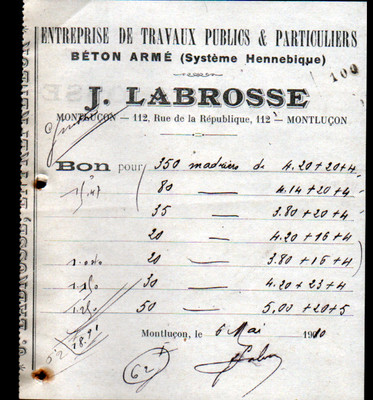 ENTREPRISE DE TRAVAUX PUBLICS & PARTICULIERS
BÉTON ARMÉ (Système Hennebique)
100
J. LABROSSE
MONTLUÇON — 112, Rue de la République, 112 — MONTLUÇON
Bon pour 350 madriers de 4.20+20+4
80 — 4.14+20+4
35 — 3.80+20+4
20 — 4.20+16+4
20 — 3.80+16+4
30 — 4.20+23+4
50 — 5,00+20+5
Montluçon, le 6 Mai 1910
62
J. LABROSSE, ENTREPRENEUR